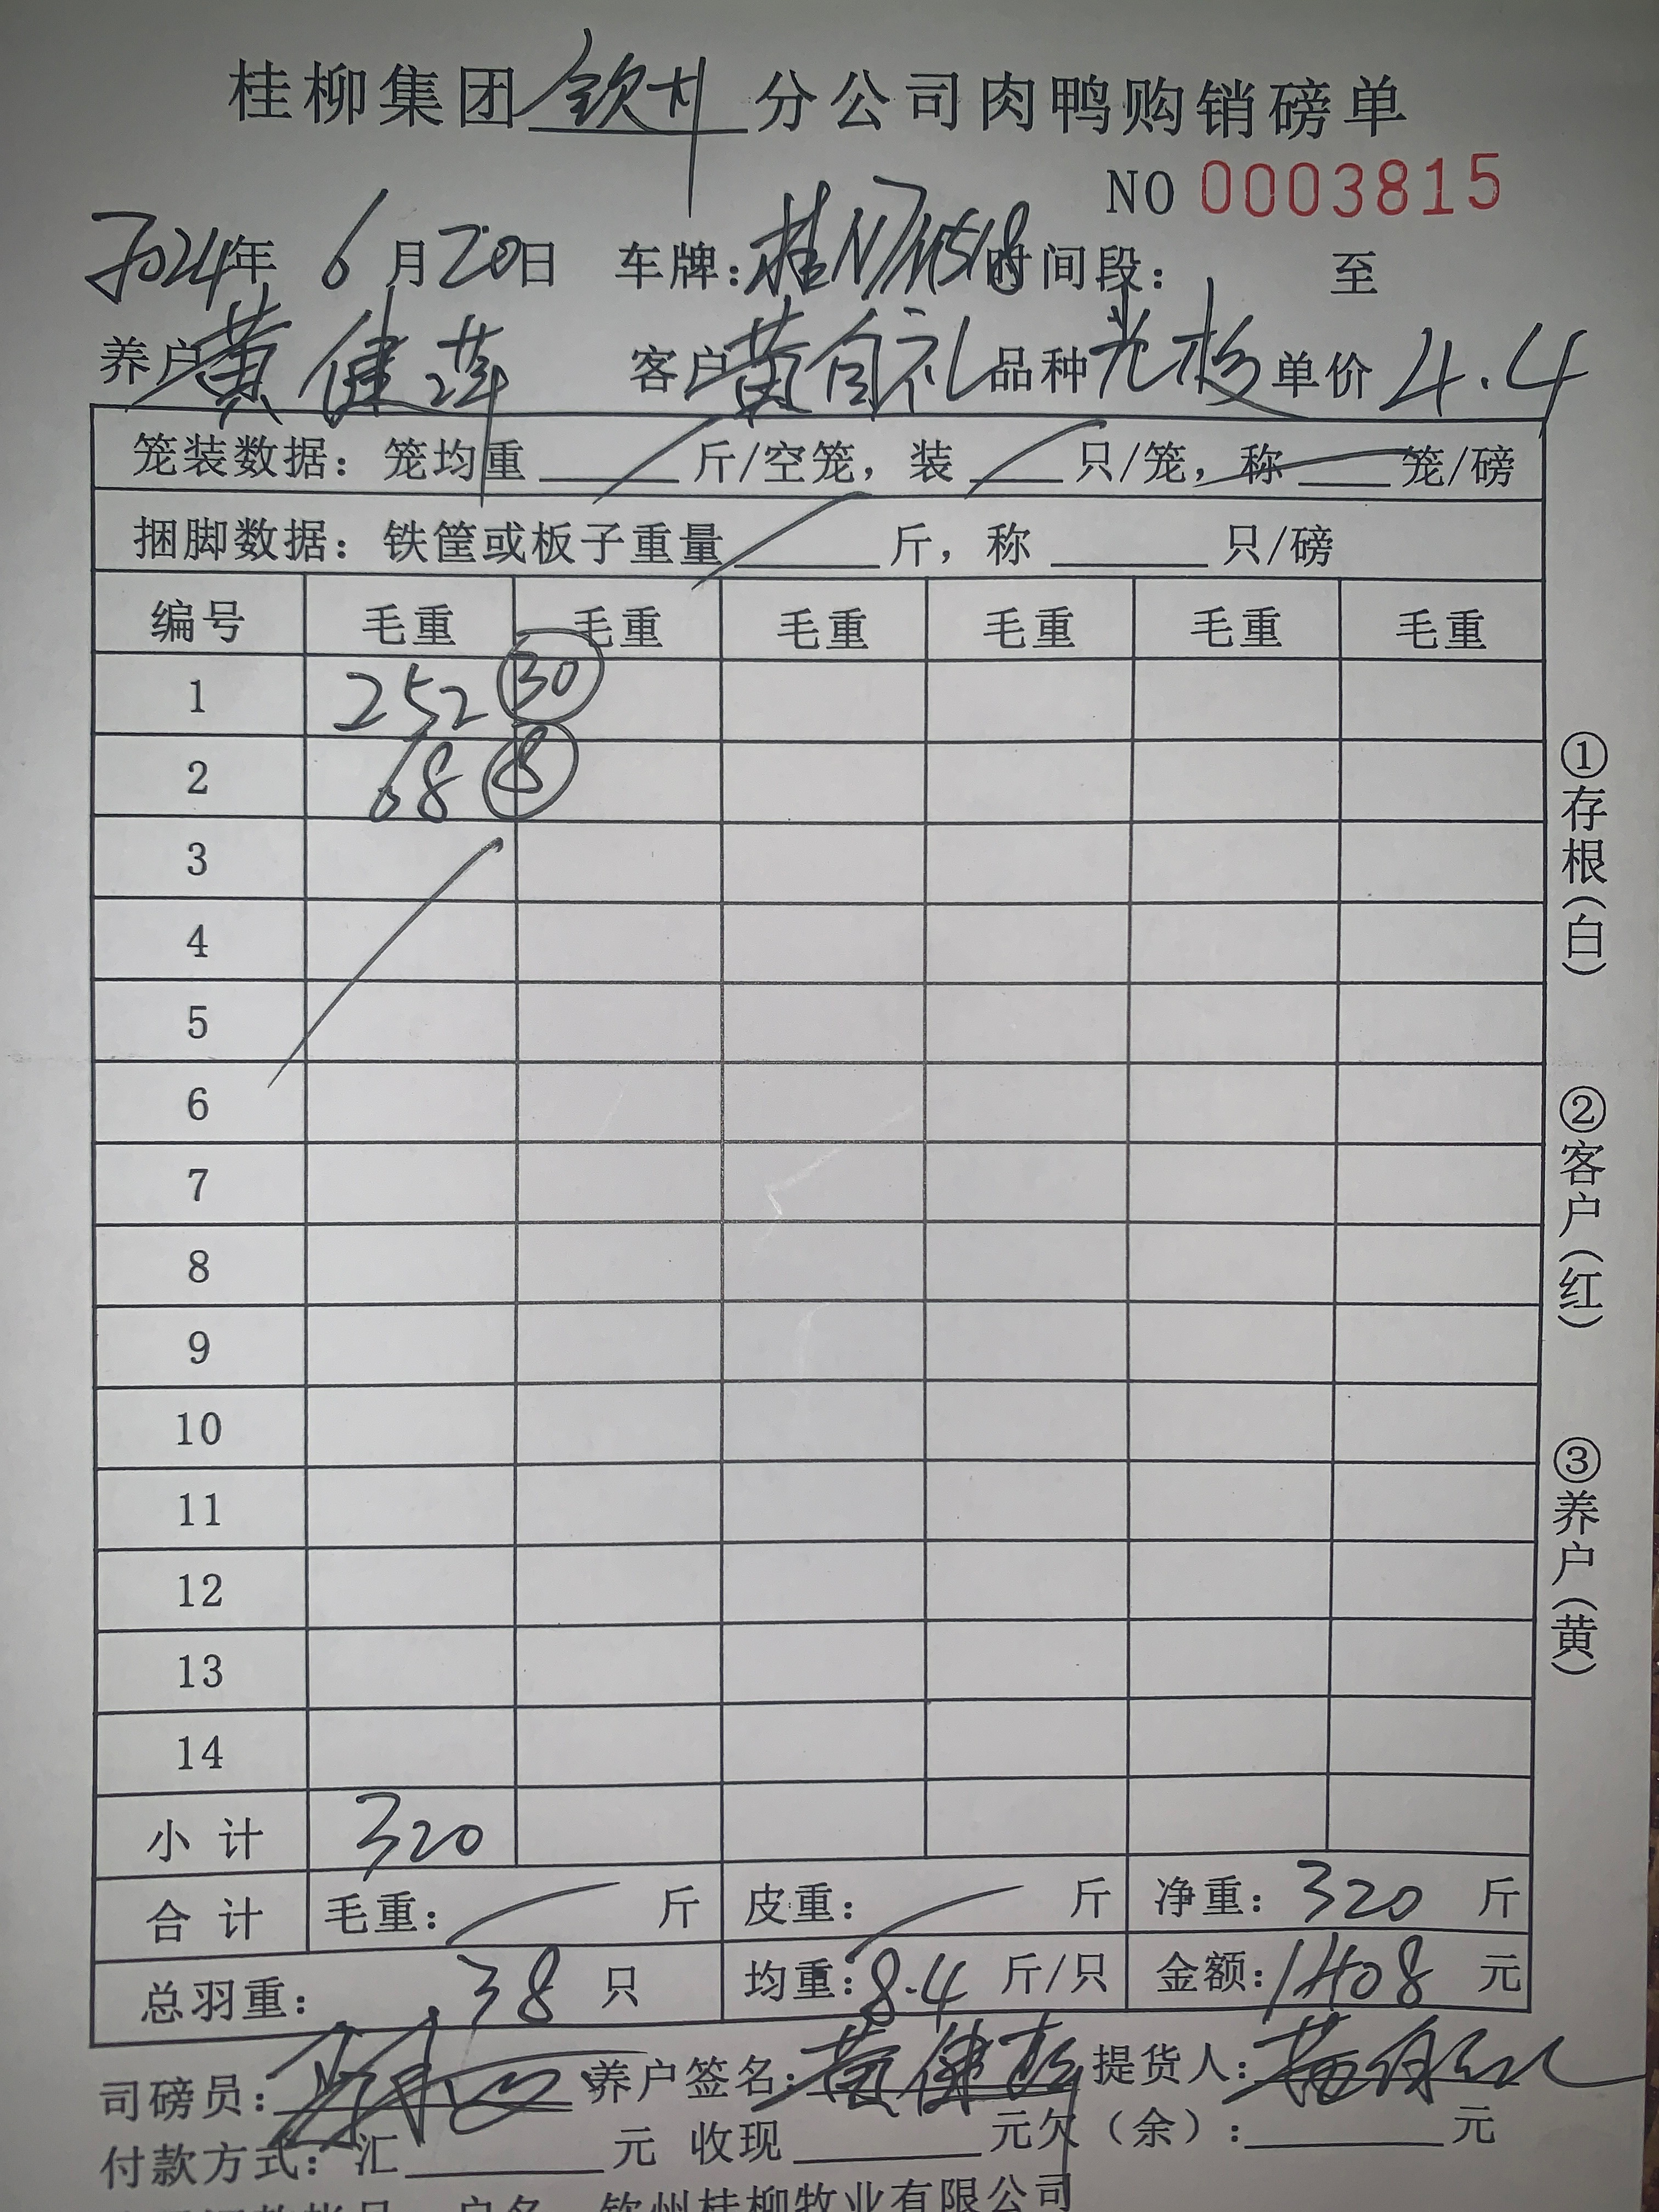 桂柳集团钦州分公司肉鸭购销磅单
NO 0003815
2024年 6月20日 车牌:桂N 时间段: 至
养户黄健 客户黄自礼 品种 单价 4.4
笼装数据: 笼均重 斤/空笼, 装 只/笼, 称 笼/磅
捆脚数据: 铁筐或板子重量 斤, 称 只/磅
编号 毛重 毛重 毛重 毛重 毛重 毛重
1 252 30
2 68 8
3
4
5
6
7
8
9
10
11
12
13
14
小计 320
合计 毛重: 斤 皮重: 斤 净重: 320 斤
总羽重: 38 只 均重: 8.4 斤/只 金额: 1408 元
司磅员: 养户签名: 黄健 提货人: 黄自礼
付款方式: 汇 元 收现 元欠(余): 元
户名 钦州桂柳牧业有限公司
①存根(白)
②客户(红)
③养户(黄)